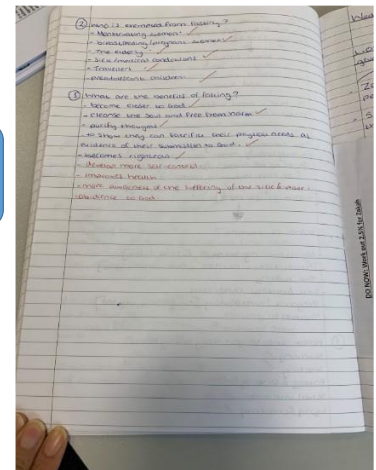 ② Who is exempted from fasting?
- Menstruating women
- breastfeeding/pregnant women
- The elderly
- Sick/medical conditions
- Travellers
- preadolescent children
③ What are the benefits of fasting?
- become closer to God
- cleanse the soul and free from harm
- purify thoughts
- to show they can sacrifice their physical needs as
evidence of their submission to God.
- becomes righteous
- develop more self-control
- improves health
- more awareness of the suffering of the
- obedience to God
DO NOW: Work out 2.5% for Zakah